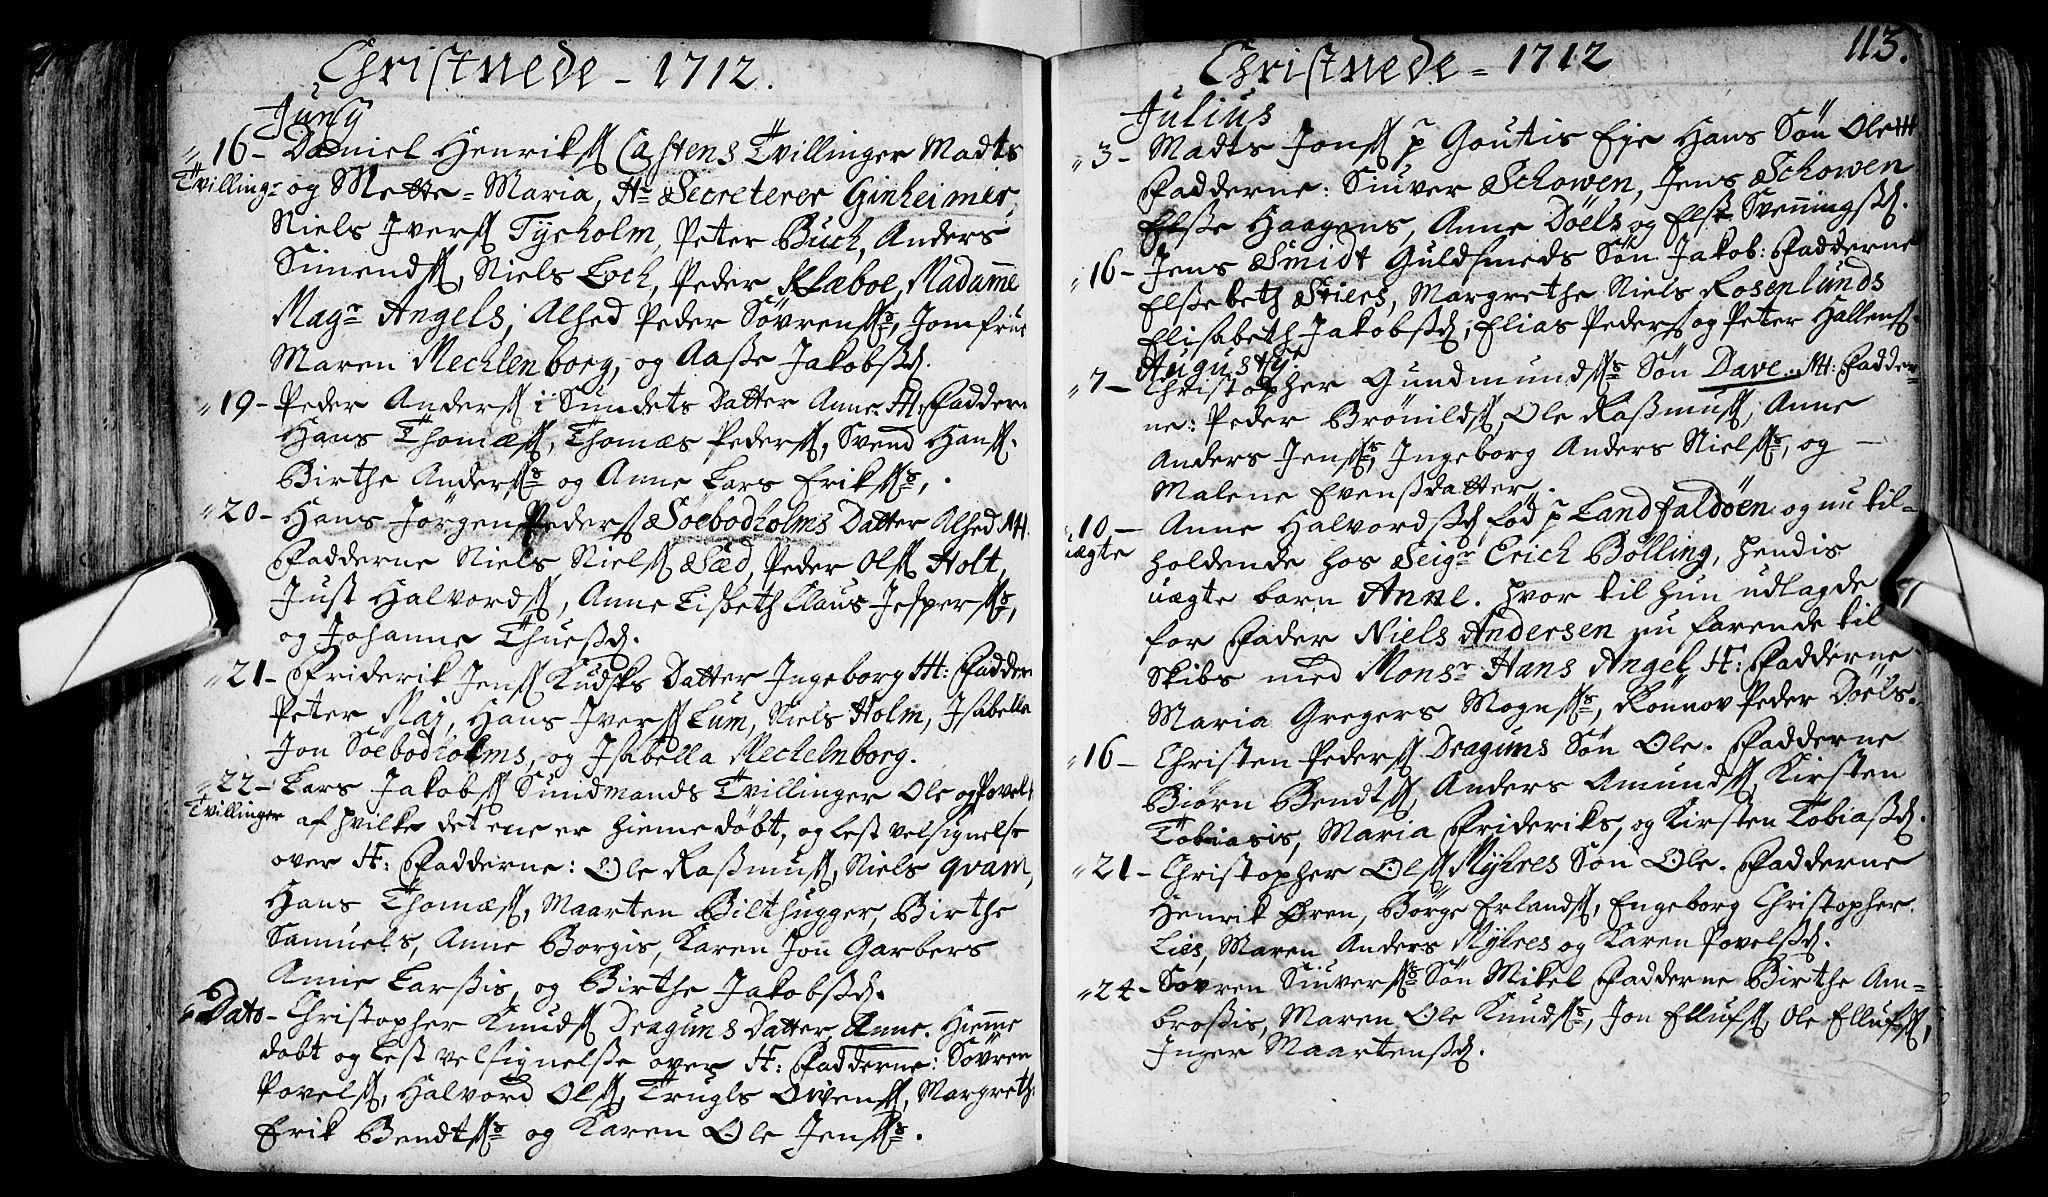 Christnede - 1712.
Juny
"16 - Daniel Henrikss Castens Tvillinger Madts
Tvillingr og Mette=Maria, Hr Secreterer Ginheimer,
Niels Iverss Tyrholm, Peter Buch, Anders
Simendss, Niels Loch, Peder Klæboe, Madamme
Magr Angels, Alhed Peder Sövrensss, Jomfrue
Maren Mechlenborg, og Aaße Jakobsd.
"19 - Peder Anderss i Sundets Datter Anne. H: Faddern
Hans Thomæss, Thomæs Pederss, Svend Hanss.
Birthe Andersss og Anne Lars Eriksss,.
"20 - Hans Jörgen Peders Soebodholms Datter Alhed NH
Fadderne Niels Nielss Sæd, Peder Olss Holt,
Just Halvordss, Anne Lisbeth Claus Jesperss,
og Johanne Thuesd.
"21 - Friderik Jenss Kudsks Datter Ingeborg H: Faddern
Peter Maj, Hans Iverss Lum, Niels Holm, Isabella
Jon Soebodholms, og Isabella Mechelnborg.
"22 - Lars Jakobss Sundmands Tvillinger Ole og Povel,
Tvillinger af hvilke det ene er hiemedöbt, og lest velsignelse
over H: Fadderne: Ole Raßmuss, Niels Qvam,
Hans Thomæss, Maarten Bilthugger, Birthe
Samuels, Anne Borgis, Karen Jon Garbers
Anne Larßis, og Birthe Jakobsd.
"Dato - Christopher Knudss Draguns Datter Anne. Hiemme
dobt og lest velsignelße over H: Fadderne: Sövren
Povelss, Halvord Olss, Trugls Owenss, Margreth
Erik Bendtsss og Karen Ole Jensss.
Christnede = 1712
113.
Julius
"3 - Madts Jonss p Goutis Eje Hans Sön Ole H
Fadderne: Siuver Schowen, Jens Schowen
Elße Haagens, Anne Döels og Elße Svenningsd.
"16 - Jens Smidt Guldsmeds Sön Jakob: Fadderne
Elßebeth Stiers, Margrethe Niels Rosenlunds
Elisabeth Jakobsd, Elias Pederss og Peter Hallenss.
Augusty
"7 - Christopher Gundmundsss Sön Dave. NH: Fadder=
ne: Peder Brönildss, Ole Raßmuss, Anne
Anders Jensss, Ingeborg Anders Nielsss, og
Malene Evensdatter.
"10 - Anne Halvordsd föd p Landfaldöen og nu til=
uægte holdende hos Seigr Erich Bölling, hendis
uægte barn Anne. hvor til hun udlagde
for Fader Niels Andersen nu farende til
Skibs med Monsr Hans Angel, H: Fadderne
Maria Gregers Mognsss, Rönnov Peder Döels.
"16 - Christen Pederss Draguns Sön Ole. Fadderne
Biörn Bendtss, Anders Amundss, Kirsten
Tobiasis, Maria Frideriks, og Kirsten Tobiasd.
"21 - Christopher Olss Myhres Sön Ole. Fadderne
Henrik Ören, Börge Erlandss, Engeborg Christopher
Lies, Maren Anders Myhres og Karen Povelsd.
"24 - Sövren Siuversss Sön Mikel Fadderne Birthe Am=
broßis, Maren Ole Knudsss, Jon Ellufss, Ole Ellufss,
Inger Maartensd.